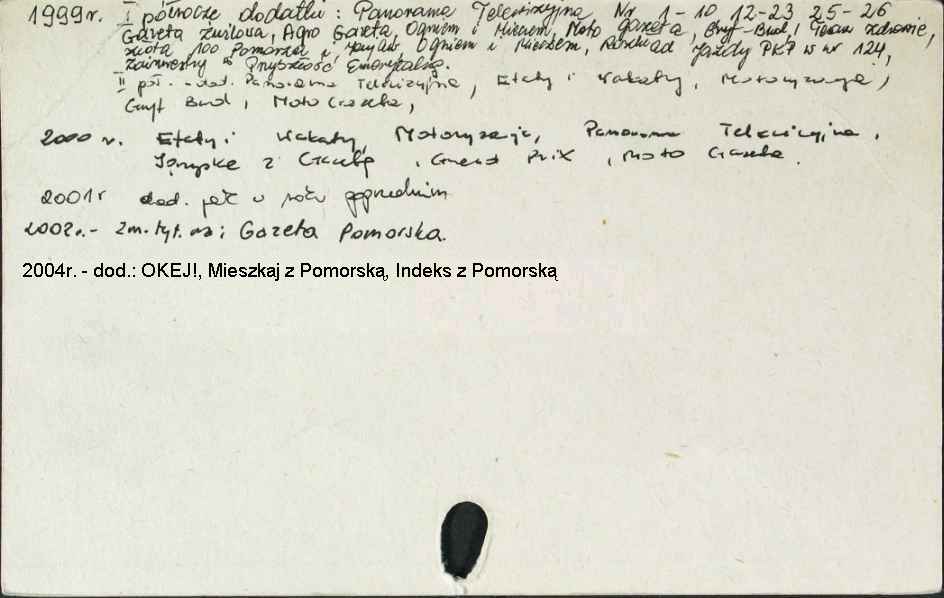 1999r. I półrocze dodatki: Panorama Telewizyjna Nr 1-10 12-23 25-26
Gazeta Żużlowa, Agro Gazeta, Ogniem i Mieczem, Moto Gazeta, Gryf-Bud, Teraz zdrowie,
złota 100 Pomorza i Ogniem i Mieczem, Rozkład Jazdy PKP w nr 124,
Przyszłość Emerytalną.
II pół. - dod. Panorama Telewizyjna, Etaty i Wakaty, Motoryzacja,
Gryf Bud, Moto Gazeta,
2000 r. Etaty i Wakaty, Motoryzacja, Panorama Telewizyjna,
z Gazetą, Grand Prix, Moto Gazeta.
2001r dod. jak w roku poprzednim
2002r. - Zm. tyt. na: Gazeta Pomorska.
2004r. - dod.: OKEJ!, Mieszkaj z Pomorską, Indeks z Pomorską